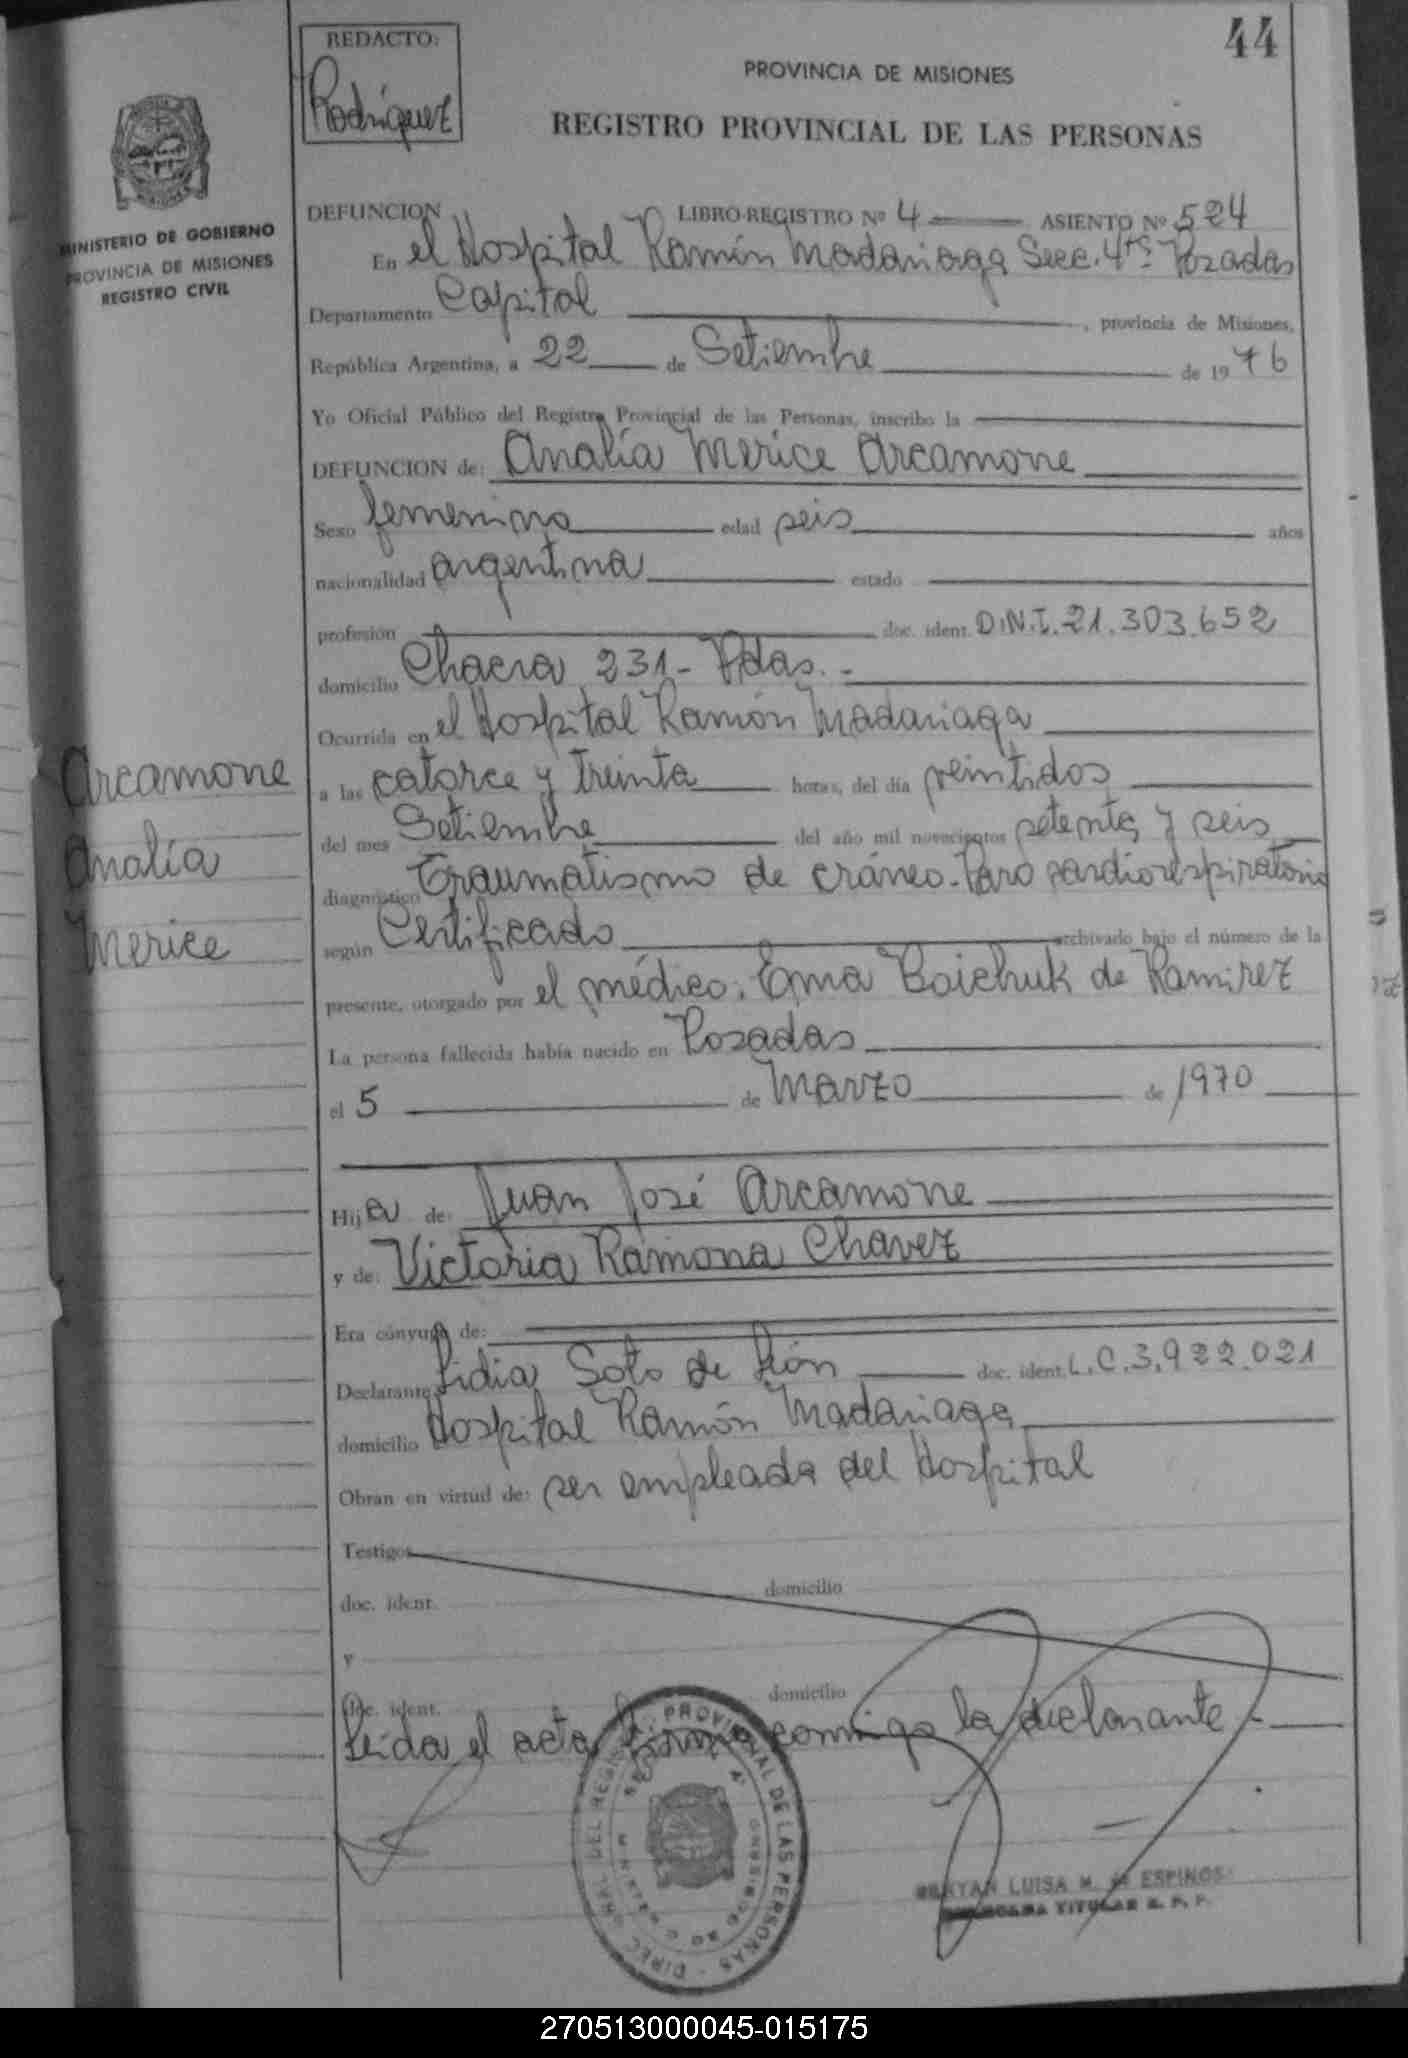 44
REDACTO:
Rodriguez
PROVINCIA DE MISIONES
REGISTRO PROVINCIAL DE LAS PERSONAS
MINISTERIO DE GOBIERNO
PROVINCIA DE MISIONES
REGISTRO CIVIL
DEFUNCION LIBRO-REGISTRO Nº 4 ASIENTO Nº 524
En el Hospital Ramón Madariaga Secc. 4ta Posadas
Departamento Capital, provincia de Misiones,
República Argentina, a 22 de Setiembre de 1976
Yo Oficial Público del Registro Provincial de las Personas, inscribo la
DEFUNCION de: Analía Merice Arcamone
Sexo femenino edad seis años
nacionalidad argentina estado
profesión doc. ident. D.N.I. 21.303.652
domicilio Chacra 231 - Pdas. -
Ocurrida en el Hospital Ramón Madariaga
a las catorce y treinta horas, del día veintidos
del mes Setiembre del año mil novecientos setenta y seis
diagnóstico Traumatismo de cráneo - Paro cardiorespiratorio
según Certificado archivado bajo el número de la
presente, otorgado por el médico: Ema Boichuk de Ramirez
La persona fallecida había nacido en Posadas
el 5 de Marzo de 1970
Hija de: Juan José Arcamone
y de: Victoria Ramona Chavez
Era cónyuge de:
Declarante Lidia Soto de León doc. ident. L.C. 3.922.021
domicilio Hospital Ramón Madariaga
Obran en virtud de: ser empleada del Hospital
Testigos
doc. ident. domicilio
y
doc. ident. domicilio
Leída el acta firma conmigo la declarante -
Arcamone
Analía
Merice
DIREC. GRAL. DEL REGIST. PROVINCIAL DE LAS PERSONAS
LUISA M. ESPINOS
TITULAR R. P. P.
270513000045-015175